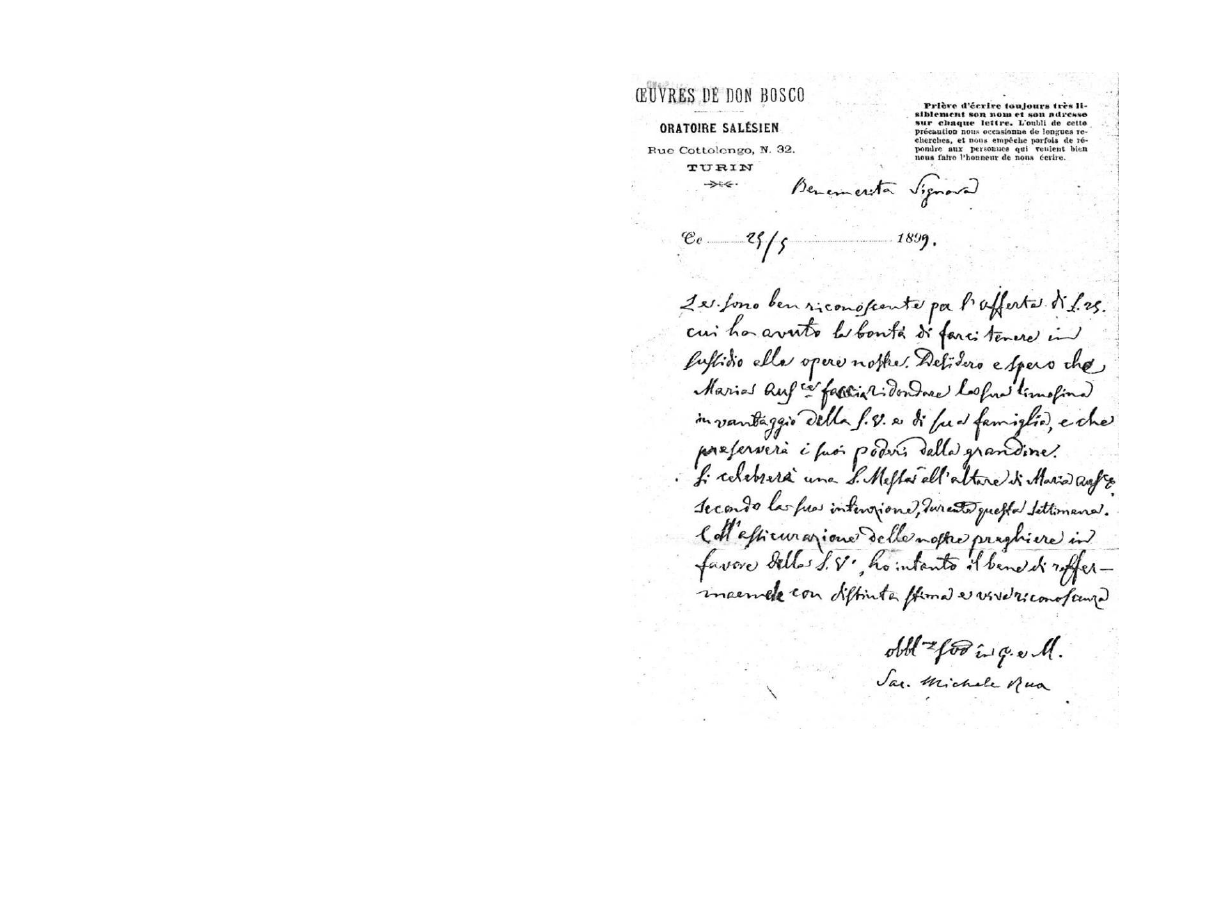 ŒUVRES DE DON BOSCO
ORATOIRE SALÉSIEN
Rue Cottolengo, N. 32.
TURIN
Prière d'écrire toujours très li-
siblement son nom et son adresse
sur chaque lettre. L'oubli de cette
précaution nous occasionne de longues re-
cherches, et nous empêche parfois de ré-
pondre aux personnes qui veulent bien
nous faire l'honneur de nous écrire.
Benemerita Signora
Ce 25/5 1899.
Le sono ben riconoscente per l'offerta di L. 25.
cui ha avuto la bontà di farci tenere in
sussidio alle opere nostre. Desidero e spero che
Maria Aus.ce faccia ridondare la sua limosina
in vantaggio della S. V. e di sua famiglia, e che
preserverà i suoi poderi dalla grandine.
Si celebrerà una S. Messa all'altare di Maria Aus.ce
secondo la sua intenzione, durante questa settimana.
Coll'assicurazione delle nostre preghiere in
favore della S. V., ho intanto il bene di raffer-
marmele con distinta stima e viva riconoscenza
obbl.mo in G. e M.
Sac. Michele Rua